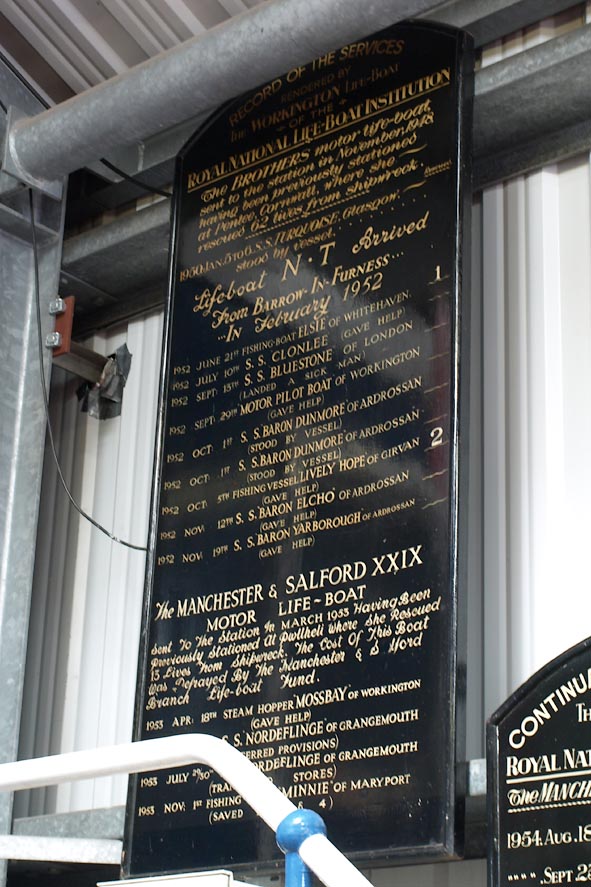 RECORD OF THE SERVICES
RENDERED BY
THE WORKINGTON LIFE-BOAT
OF THE
ROYAL NATIONAL LIFE-BOAT INSTITUTION
The BROTHERS motor life-boat,
sent to the station in November, 1948
having been previously stationed
at Penlee, Cornwall, where she
rescued 62 lives from shipwreck.
1950 JAN. 5 TO 6 S.S. TURQUOISE, Glasgow.
stood by vessel.
Lifeboat N.T Arrived
From BARROW-IN-FURNESS...
...In February 1952
1952 JUNE 21ST FISHING-BOAT ELSIE OF WHITEHAVEN. 1
1952 JULY 10TH S.S. CLONLEE (GAVE HELP)
1952 SEPT: 15TH S.S. BLUESTONE OF LONDON
(LANDED A SICK MAN)
1952 SEPT: 29TH MOTOR PILOT BOAT OF WORKINGTON
(GAVE HELP)
1952 OCT: 1ST S.S. BARON DUNMORE OF ARDROSSAN
(STOOD BY VESSEL)
1952 OCT: 1ST S.S. BARON DUNMORE OF ARDROSSAN
(STOOD BY VESSEL)
1952 OCT: 5TH FISHING VESSEL LIVELY HOPE OF GIRVAN 2
(GAVE HELP)
1952 NOV: 12TH S.S. BARON ELCHO OF ARDROSSAN
(GAVE HELP)
1952 NOV: 19TH S.S. BARON YARBOROUGH OF ARDROSSAN
(GAVE HELP)
The MANCHESTER & SALFORD XXIX
MOTOR LIFE-BOAT
Sent To The Station In MARCH 1953 Having Been
Previously Stationed At Pwllheli Where She Rescued
15 Lives From Shipwreck. The Cost Of This Boat
Was Defrayed By The Manchester & S lford
Branch Life-boat Fund.
1953 APR: 18TH STEAM HOPPER MOSSBAY OF WORKINGTON
(GAVE HELP)
S.S. NORDEFLINGE OF GRANGEMOUTH
PROVISIONS)
1953 JULY NORDEFLINGE OF GRANGEMOUTH
STORES)
1953 NOV: 1ST FISHING MINNIE OF MARYPORT
(SAVED & 4)
CONTINU
TH
ROYAL NAT
The MANCH
1954. AUG. 18
" " " " . SEPT. 25